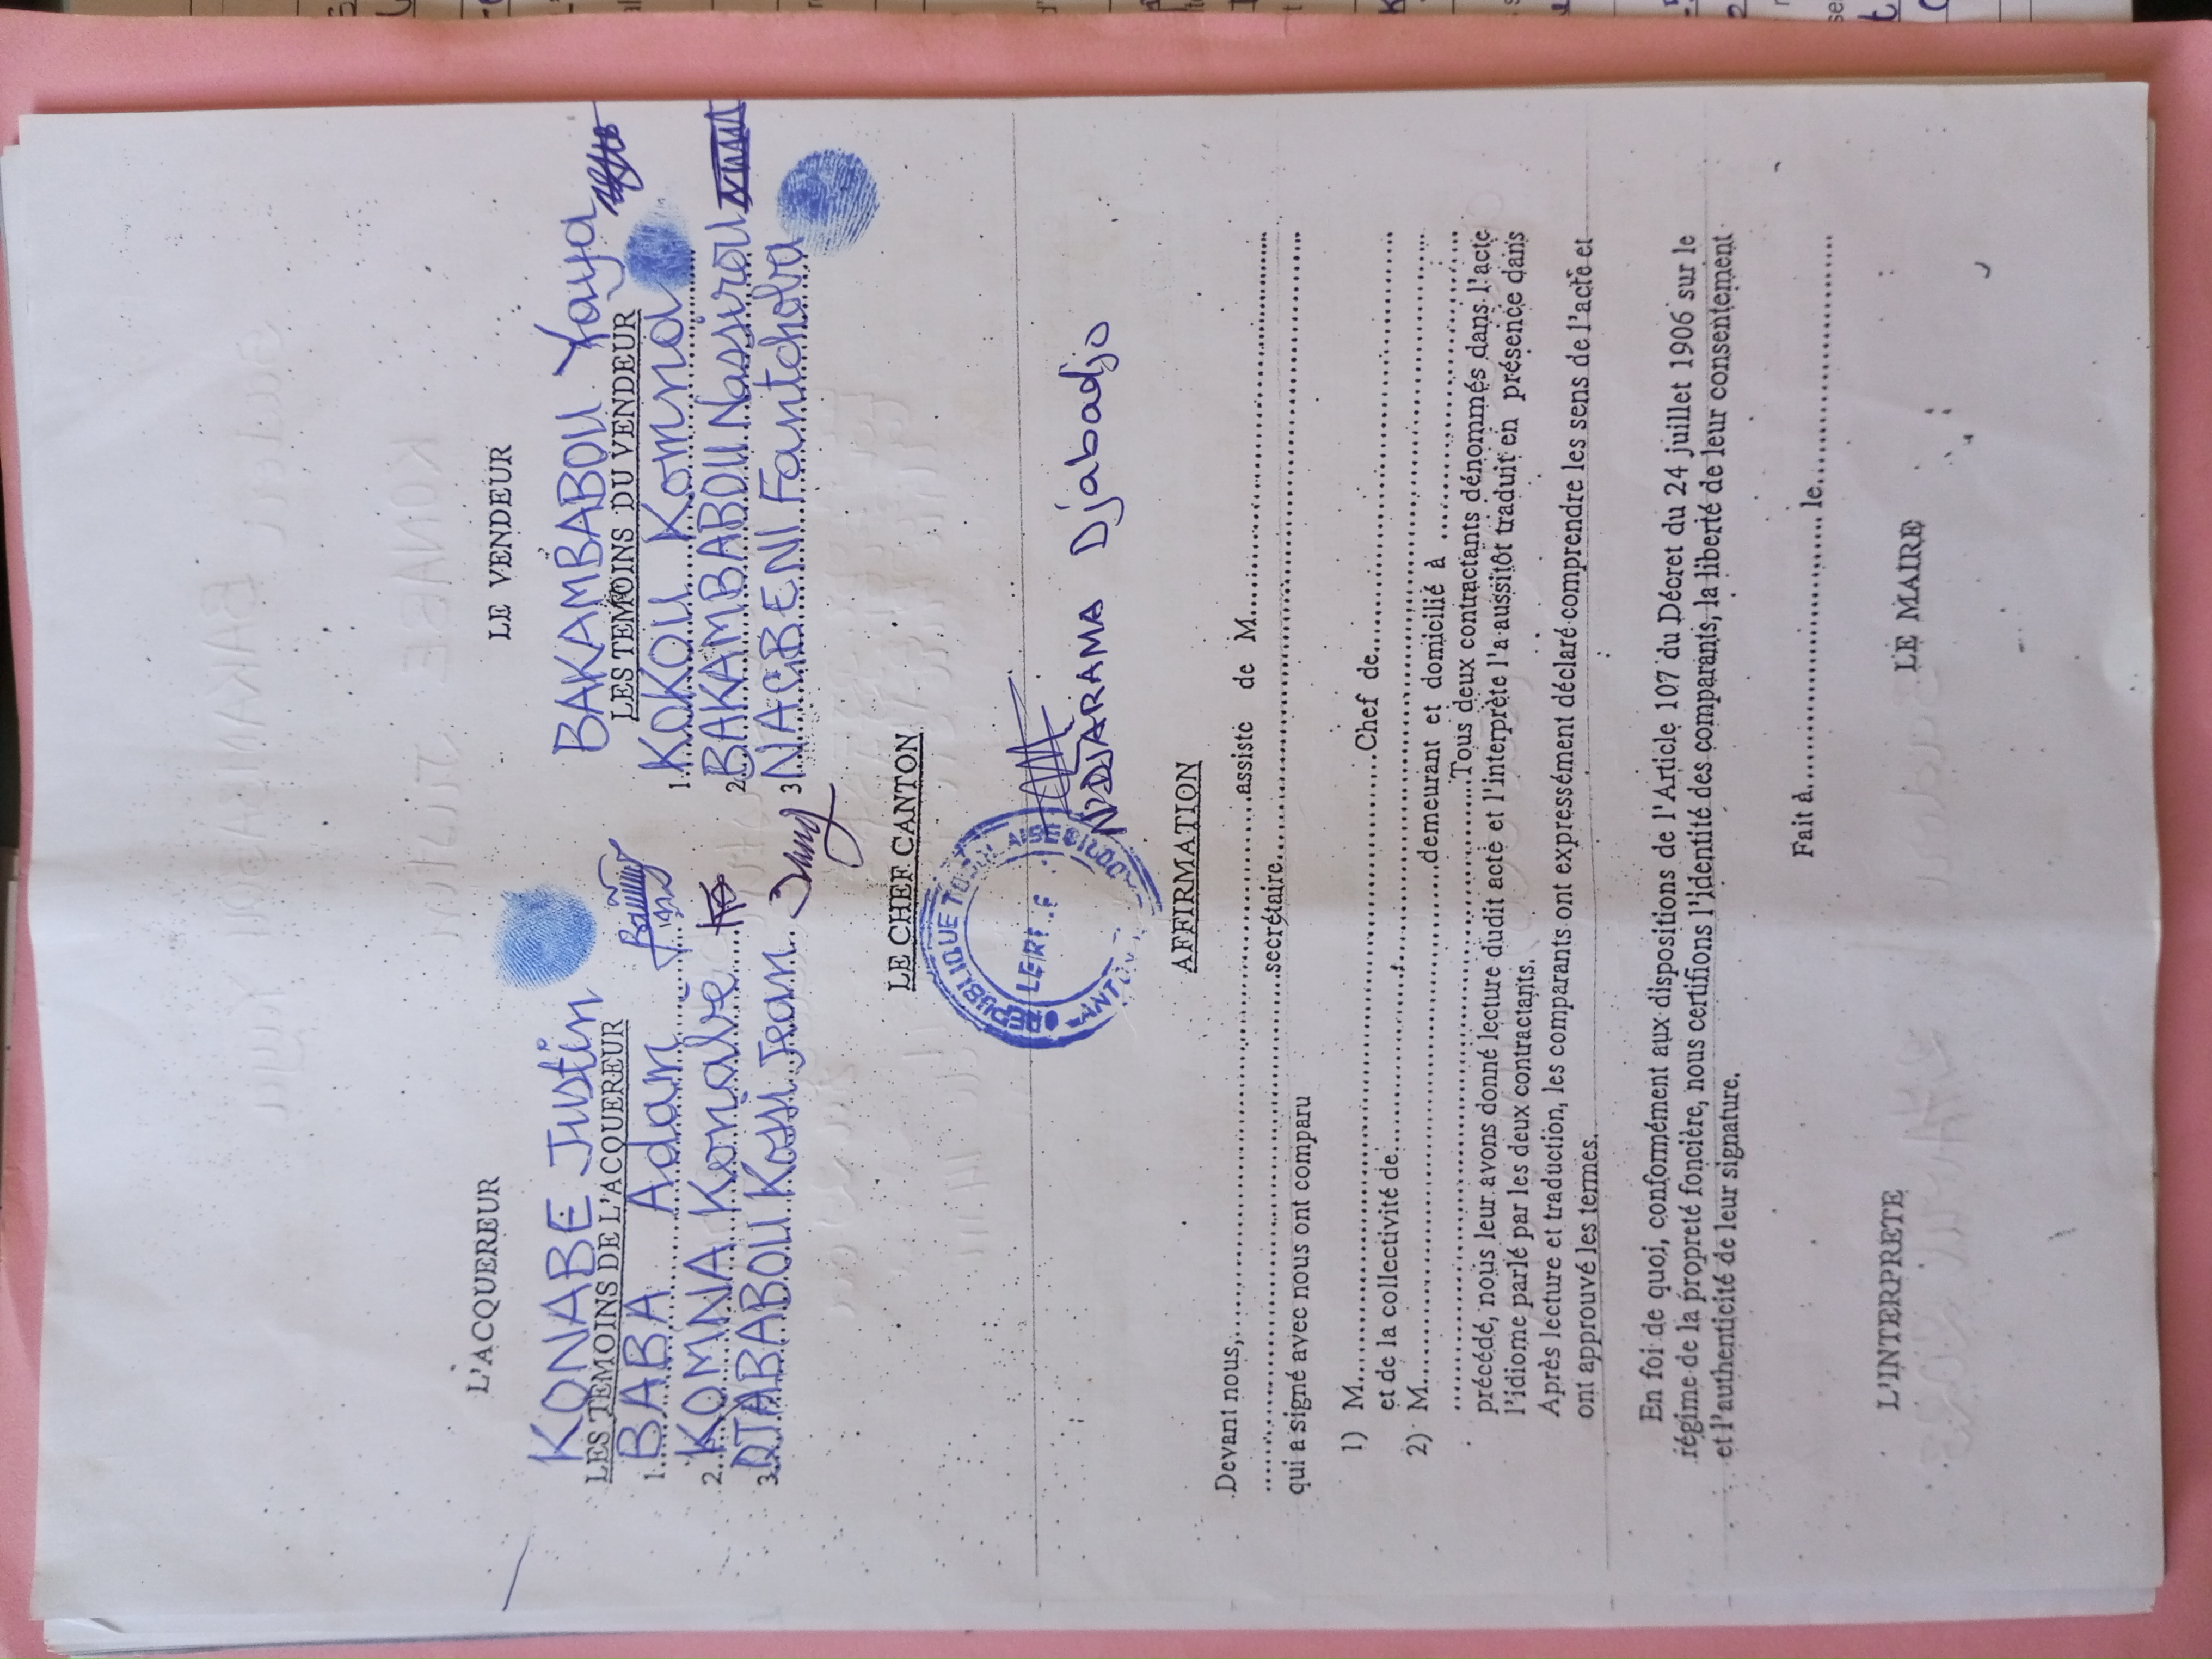 L'ACQUEREUR
KONABE Justin
LES TEMOINS DE L'ACQUEREUR
1. BABA Adam
2. KOMNA Konabe
3. DJABABOU Kossi Jean
LE VENDEUR
BAKAMBABOU Yaya
LES TEMOINS DU VENDEUR
1. KOKOU Komna
2. BAKAMBABOU Nassirou
3. NAGBENI Fantchoba
LE CHEF CANTON
REPUBLIQUE
N'DJARAMA Djabadjo
AFFIRMATION
Devant nous,....................assisté de M....................
....................secrétaire....................
qui a signé avec nous ont comparu
1) M....................Chef de....................
et de la collectivité de....................
2) M....................demeurant et domicilié à ....................
....................Tous deux contractants dénommés dans l'acte
précédé, nous leur avons donné lecture dudit acte et l'interprète l'a aussitôt traduit en présence dans
l'idiome parlé par les deux contractants.
Après lecture et traduction, les comparants ont expressément déclaré comprendre les sens de l'acte et
ont approuvé les termes.
En foi de quoi, conformément aux dispositions de l'Article 107 du Décret du 24 juillet 1906 sur le
régime de la propreté foncière, nous certifions l'identité des comparants, la liberté de leur consentement
et l'authenticité de leur signature.
Fait à....................le....................
L'INTERPRETE
LE MAIRE